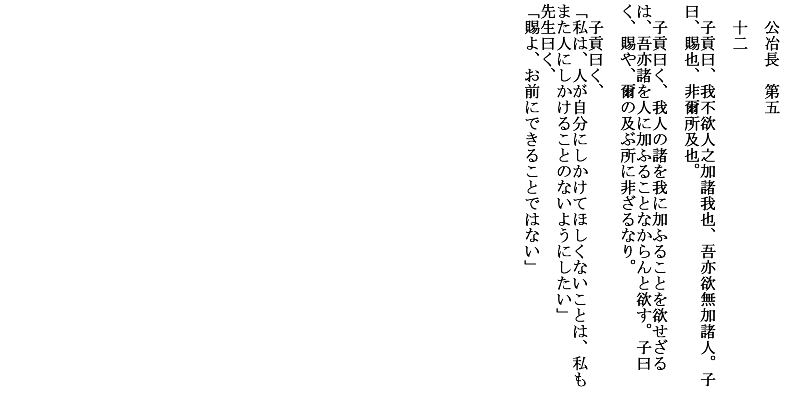 公冶長　第五
十二
子貢曰、我不欲人之加諸我也、吾亦欲無加諸人。子
曰、賜也、非爾所及也。
子貢曰く、我人の諸を我に加ふることを欲せざる
は、吾亦諸を人に加ふることなからんと欲す。子曰
く、賜や、爾の及ぶ所に非ざるなり。
子貢曰く、
「私は、人が自分にしかけてほしくないことは、私も
また人にしかけることのないようにしたい」
先生曰く、
「賜よ、お前にできることではない」